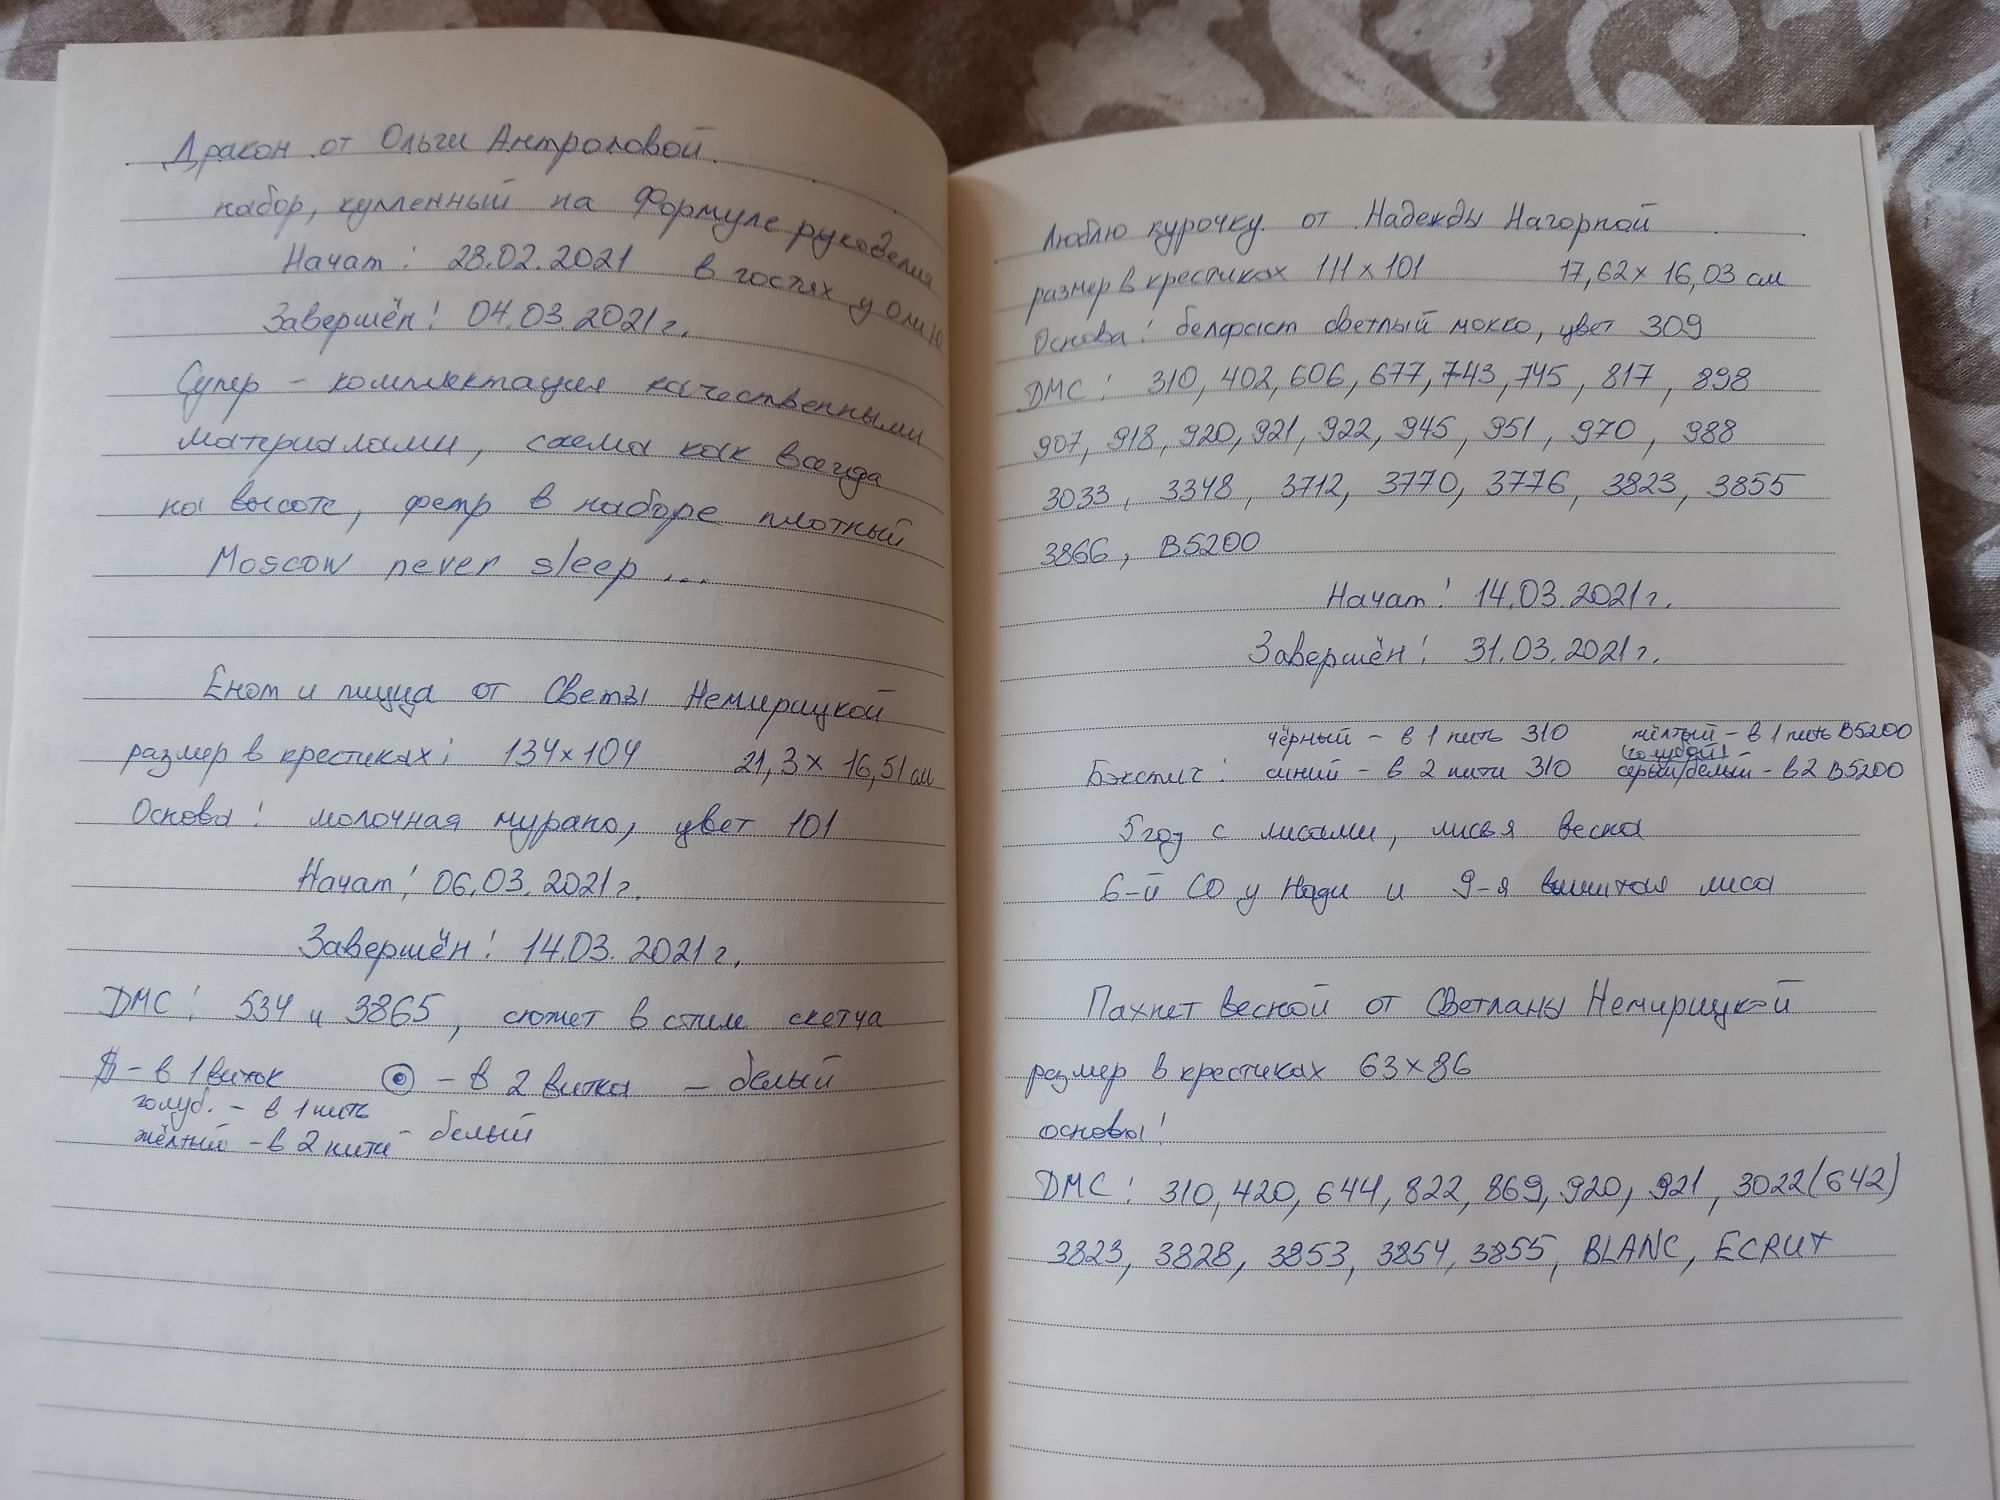 Дракон от Ольги Антроповой.
набор, купленный на Формуле рукоделия
Начат: 28.02.2021 в гостях у Оли Ю
Завершён: 04.03.2021 г.
Супер - комплектация качественными
материалами, схема как всегда
на высоте, фетр в наборе плотный
Moscow never sleep...
Енот и пицца от Светы Немирицкой
размер в крестиках: 134 x 104 21,3 x 16,51 см
Основа: молочная мурано, цвет 101
Начат: 06.03.2021 г.
Завершён: 14.03.2021 г.
DMC: 534 и 3865, сюжет в стиле скетча
- в 1 виток - в 2 витка - белый
голуб. - в 1 нить
жёлтый - в 2 нити - белый
Люблю курочку. от Надежды Нагорной
размер в крестиках 111 x 101 17,62 x 16,03 см
Основа: белфаст светлый мокко, цвет 309
DMC: 310, 402, 606, 677, 743, 745, 817, 898
907, 918, 920, 921, 922, 945, 951, 970, 988
3033, 3348, 3712, 3770, 3776, 3823, 3855
3866, B5200
Начат: 14.03.2021 г.
Завершён: 31.03.2021 г.
чёрный - в 1 нить 310 жёлтый - в 1 нить B5200
(голубой)
Бэкстич: синий - в 2 нити 310 серый/белый - в 2 B5200
5 год с лисами, лисья весна
6-й СО у Нади и 9-я вышитая лиса
Пахнет весной от Светланы Немирицкой
размер в крестиках 63 x 86
основа:
DMC: 310, 420, 644, 822, 869, 920, 921, 3022 (642)
3823, 3828, 3853, 3854, 3855, BLANC, ECRUT